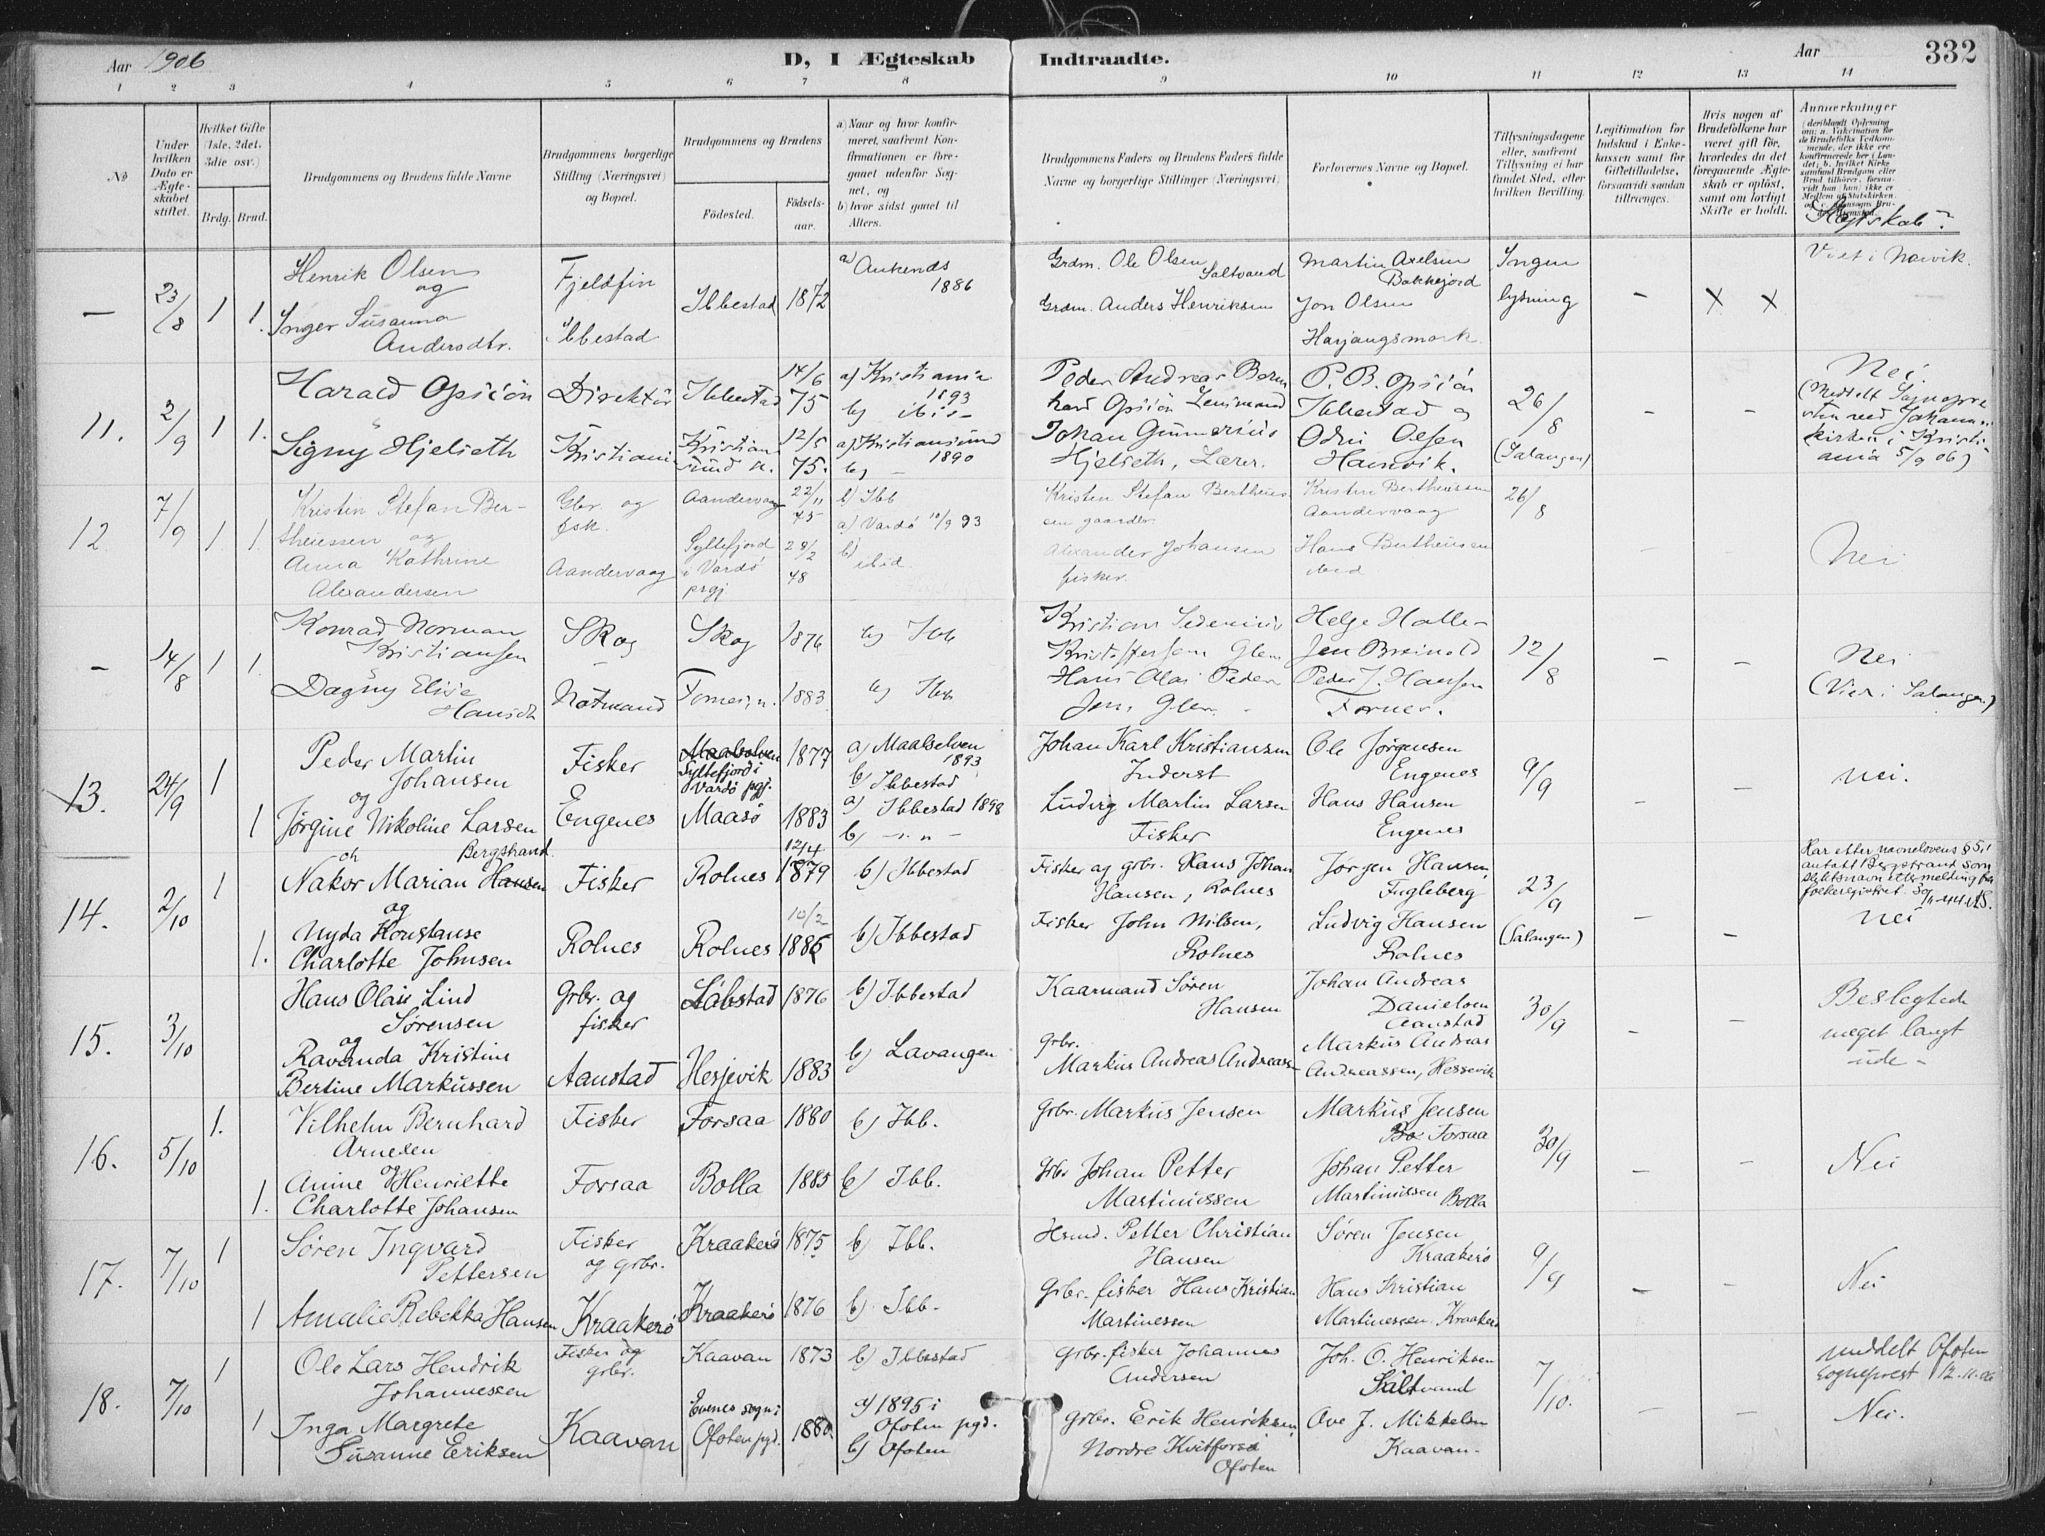 Aar 1906 D, I Ægteskab Indtraadte. Aar 332
1 2 3 4 5 6 7 8 9 10 11 12 13 14
No
Under hvilken Dato er Ægteskabet stiftet.
Hvilket Gifte (1ste, 2det, 3die osv.)
Brdg. Brud.
Brudgommens og Brudens fulde Navne
Brudgommens borgerlige Stilling (Næringsvei) og Bopæl.
Brudgommens og Brudens
Fødested. Fødselsaar.
a) Naar og hvor konfirmeret, saafremt Konfirmationen er foregaaet udenfor Sognet, og
b) hvor sidst gaaet til Alters.
Brudgommens Faders og Brudens Faders fulde Navne og borgerlige Stillinger (Næringsvei)
Forlovernes Navne og Bopæl.
Tillysningsdagene eller, saafremt Tillysning ei har fundet Sted, efter hvilken Bevilling.
Legitimation for Indskud i Enkekassen samt for Giftetilladelse, forsaavidt saadan tiltrænges.
Hvis nogen af Brudefolkene har været gift før, hvorledes da det foregaaende Ægteskab er opløst, samt om lovligt Skifte er holdt.
Anmærkninger
Slegtskab?
— 23/8 1 1.
Henrik Olsen
og
Inger Susanna
Andersdtr.
Fjeldfin
Ibbestad
Ibbestad 1872
a) Ankenes
1886
Grdm. Ole Olsen
Saltvand
Grdm. Anders Henriksen
Martin Axelsen
Bakkejord
Jon Olsen
Harjangsmark
Ingen
lysning
– x x
Viet i Narvik.
11. 2/9 1 1.
Harald Opsiön
Signy Hjelseth
Direktör
Kristiania
Ibbestad 14/6 75
Kristiansund n. 12/5 75.
a) Kristiania
1893
b) ibid –
a) Kristiansund
1890
b) –
Peder Andreas Bernhard Opsiön Lensmand
Johan Gunnerius
Hjelseth, Lærer.
P. B. Opsiön
Ibbestad og
Odin Olsen
Hamnvik.
26/8
(Salangen)
– –
Nei
(Meddelt Sognepresten ved Johanneskirken i Kristiania 5/9 06)
12 7/9 1 1.
Kristen Stefan Bertheussen og
Anna Kathrine
Alexandersen
Gbr. og
fsk.
Aandervaag
Aandervaag 22/11 75
Syltefjord
i Vardö
prgj 28/2 78
b) Ibb
a) Vardö 10/9 93
b) ibid.
Kristen Stefan Bertheussen gaardbr.
Alexander Johansen
fisker.
Kristen Bertheussen
Aandervaag
Hans Bertheusen
ibid
26/8
– –
Nei
– 14/8 1 1.
Konrad Norman
Kristiansen
Dagny Elise
Hansdt
Skog
–
Notmand
Skog 1876
1883.
b) Ibb
b) Ibb
Kristian
Kristoffersen
Hans Olai Peder
Helge Halle–
Jen
Peder J. Hansen
12/8
– –
Nei
(Viet i Salangen)
13. 24/9 1 1
Peder Martin
Johansen
og
Jørgine Nikoline Larsen
Fisker
Engenes
Maalselven
Syltefjord i
Vardø pgj. 1877
Maasø 1883
a) Maalselven
1893
b) Ibbestad
a) Ibbestad 1898
b) – " –
Johan Karl Kristiansen
Inderst
Ludvig Martin Larsen
Fisker
Ole Jørgensen
Engenes
Hans Hansen
Engenes
9/9
– –
nei.
14. 2/10 1 1.
Bergstrand.
Nakor Marian Hansen
og
Nyda Konstanse
Charlotte Johnsen
Fisker
Rolnes
Rolnes 12/4 1879
Rolnes 10/2 1886
b) Ibbestad
b) Ibbestad
Fisker og grbr. Hans Johan
Hansen, Rolnes
Fisker John Nilsen,
Rolnes
Jørgen Hansen,
Fugleberg
Ludvig Hansen
Rolnes
23/9
(Salangen)
– –
Har etter navnelovens § 5,1
antatt Bergstrand som
slektsnavn etter melding fra
folkeregistret.
nei
15. 3/10
Hans Olaii Lind
Sørensen
og
Ravanda Kristine
Bertine Markussen
Grbr. og
fisker
Aanstad
Løbstad 1876
Hesjevik 1883
b) Ibbestad
b) Lavangen
Kaarmand Søren
Hansen
Grbr.
Markus Andreas Andreassen
Johan Andreas
Danielsen
Aanstad
Markus Andreas
Andreassen, Hessevik
30/9
– –
Beslegtede
meget langt
ude –
16. 5/10 1. 1.
Vilhelm Bernhard
Arnesen
og
Anine Henriette
Charlotte Johansen
Fisker
Forsaa
Forsaa 1880
Bolla 1885
b) Ibb.
b) Ibb.
Grbr. Markus Jensen
Grbr Johan Petter
Martinussen
Markus Jensen
Forsaa
Johan Petter
Martinussen Bolla
30/9
– –
Nei
17. 7/10 1 1
Søren Ingvard
Pettersen
Amalie Rebekka Hansen
Fisker
og grbr.
Kraakerø
Kraakerø 1875
Kraakerø 1876
b) Ibb.
b) Ibb.
Hsmd. Petter Christian
Hansen
Grbr. fisker Hans Kristian
Martinessen
Søren Jensen
Kraakerø
Hans Kristian
Martinessen Kraakerø
9/9
– –
Nei
18. 7/10 1 1
Ole Lars Hendrik
Johannessen
Inga Margrete
Susanne Eriksen
Fisker og
grbr.
Kaavan
Kaavan 1873
Evenes sogn i
Ofoten pgd. 1880.
b) Ibbestad
a) 1895 i
Ofoten pgd.
b) Ofoten
Grbr. fisker Johannes
Andersen
Grbr. Erik Henriksen,
Nordre Kvitforsa
Ofoten
Joh. O. Henriksen
Saltvand
Ove J. Mikkelsen
Kaavan –
7/10.
– –
meddelt Ofoten
sogneprest 12.11.06
Nei.